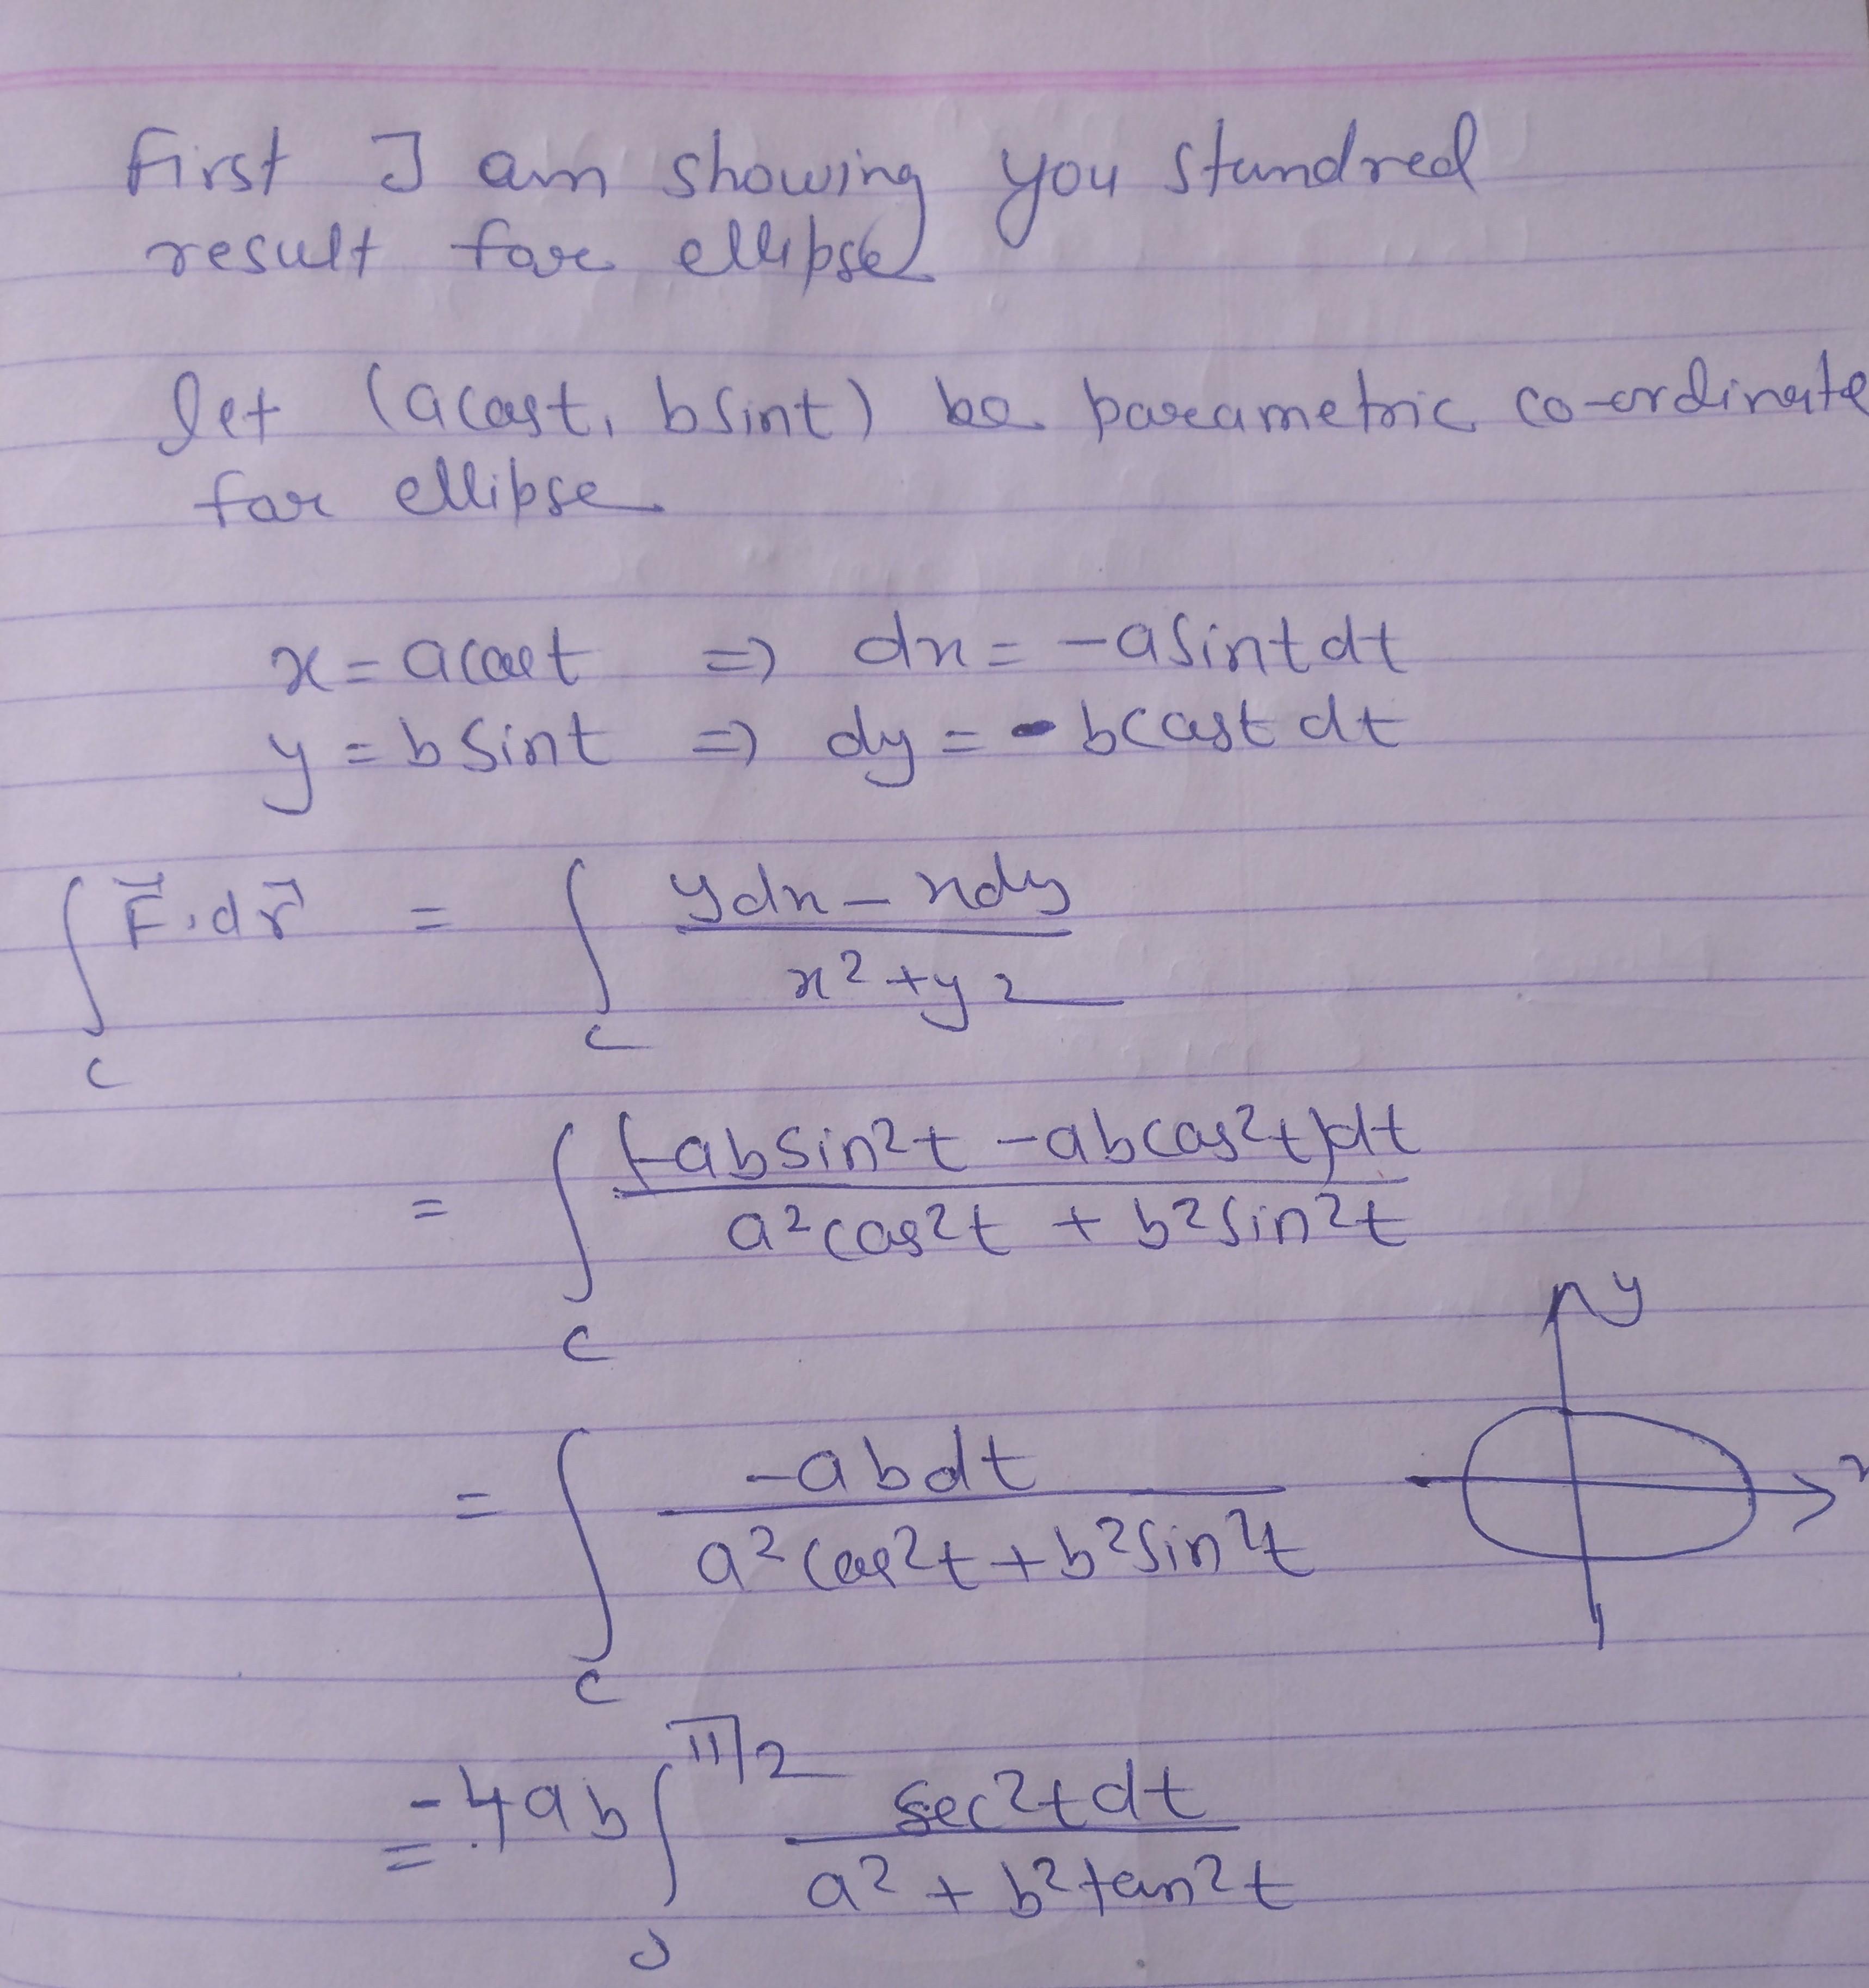 First I am showing you standred
result for ellipse
let (acost, bsint) be parametric co-ordinate
for ellipse
x = acost => dx = -asintdt
y = bsint => dy = bcost dt
∫_C F⃗.dr⃗ = ∫_C (ydx - xdy)/(x² + y²)
= ∫_C (-absin²t - abcos²t)dt/(a²cos²t + b²sin²t)
y
= ∫_C -abdt/(a²cos²t + b²sin²t)
x
= -4ab ∫_0^π/2 sec²tdt/(a² + b²tan²t)